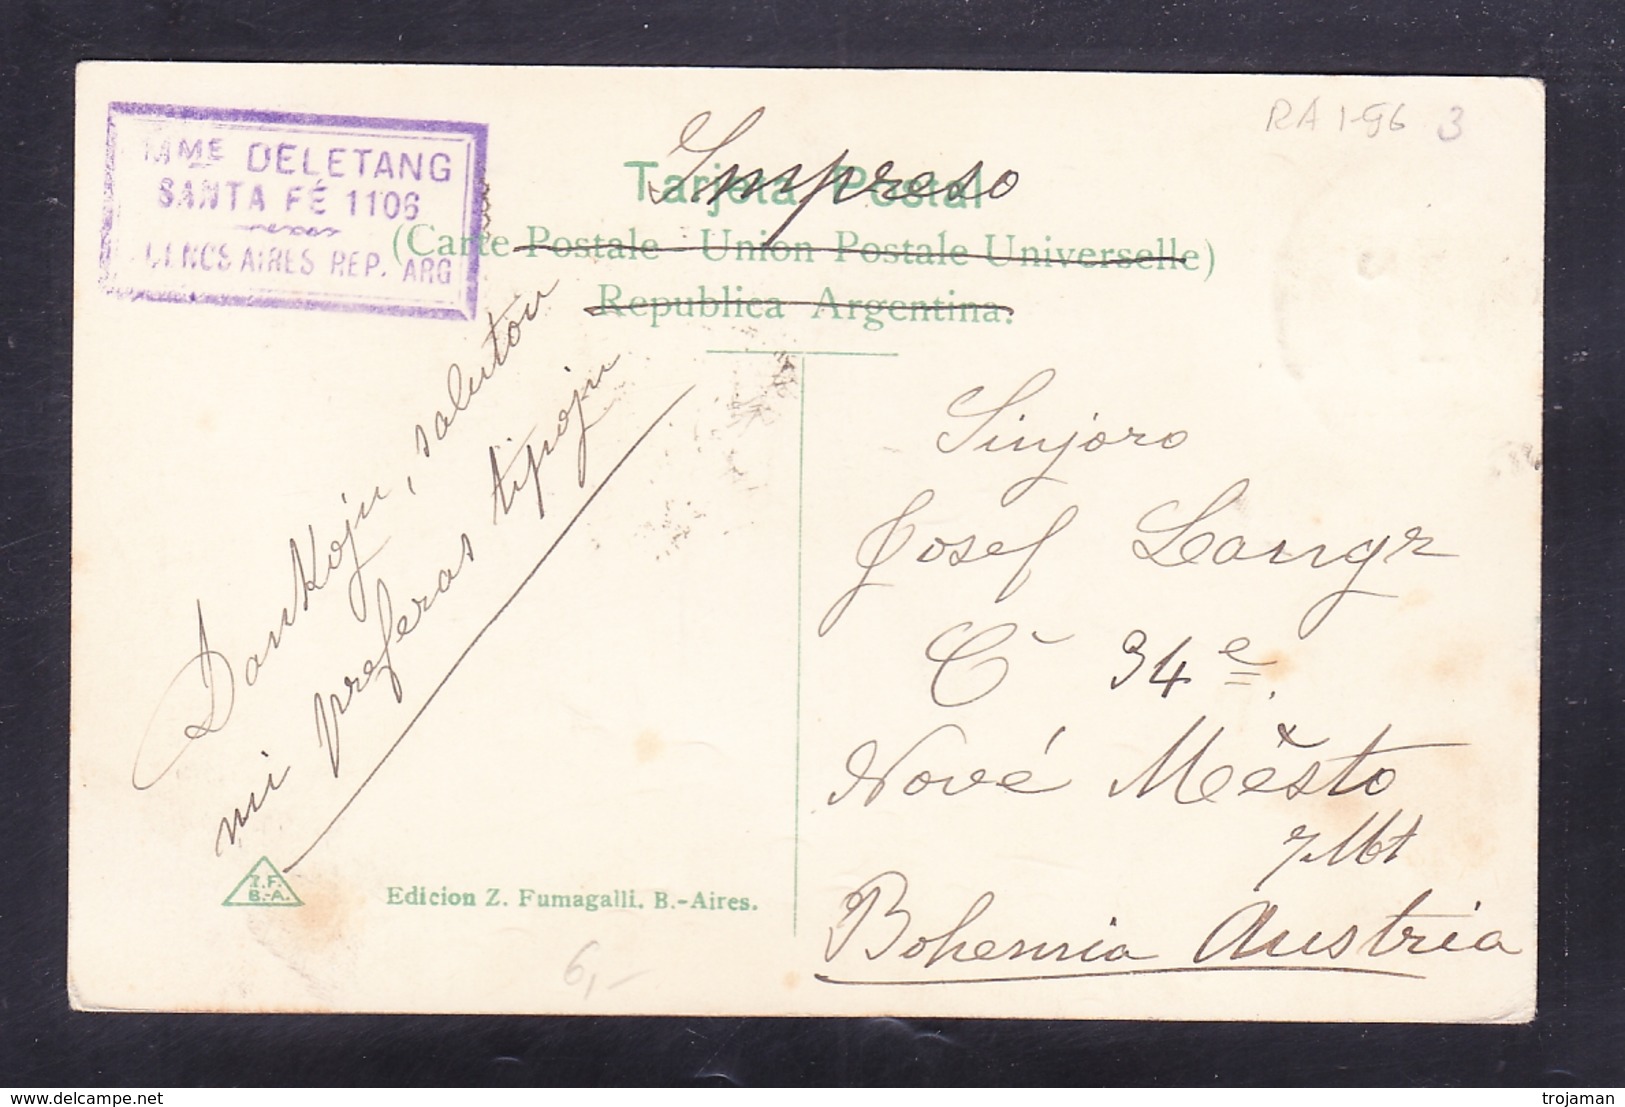 RA 1-96 3
MME DELETANG
SANTA FÉ 1106
BUENOS AIRES REP. ARG
Impreso
Tarjeta Postal
(Carte Postale - Union Postale Universelle)
Republica Argentina.
Dankojn, salutōn
mi preferas tipojn
Sinjoro
Josef Langr
Č 34e
Nové Město
n/Met
Bohemia Austria
Z.F.
B.-A.
Edicion Z. Fumagalli. B.-Aires.
6,-
trojaman
delcampe.net